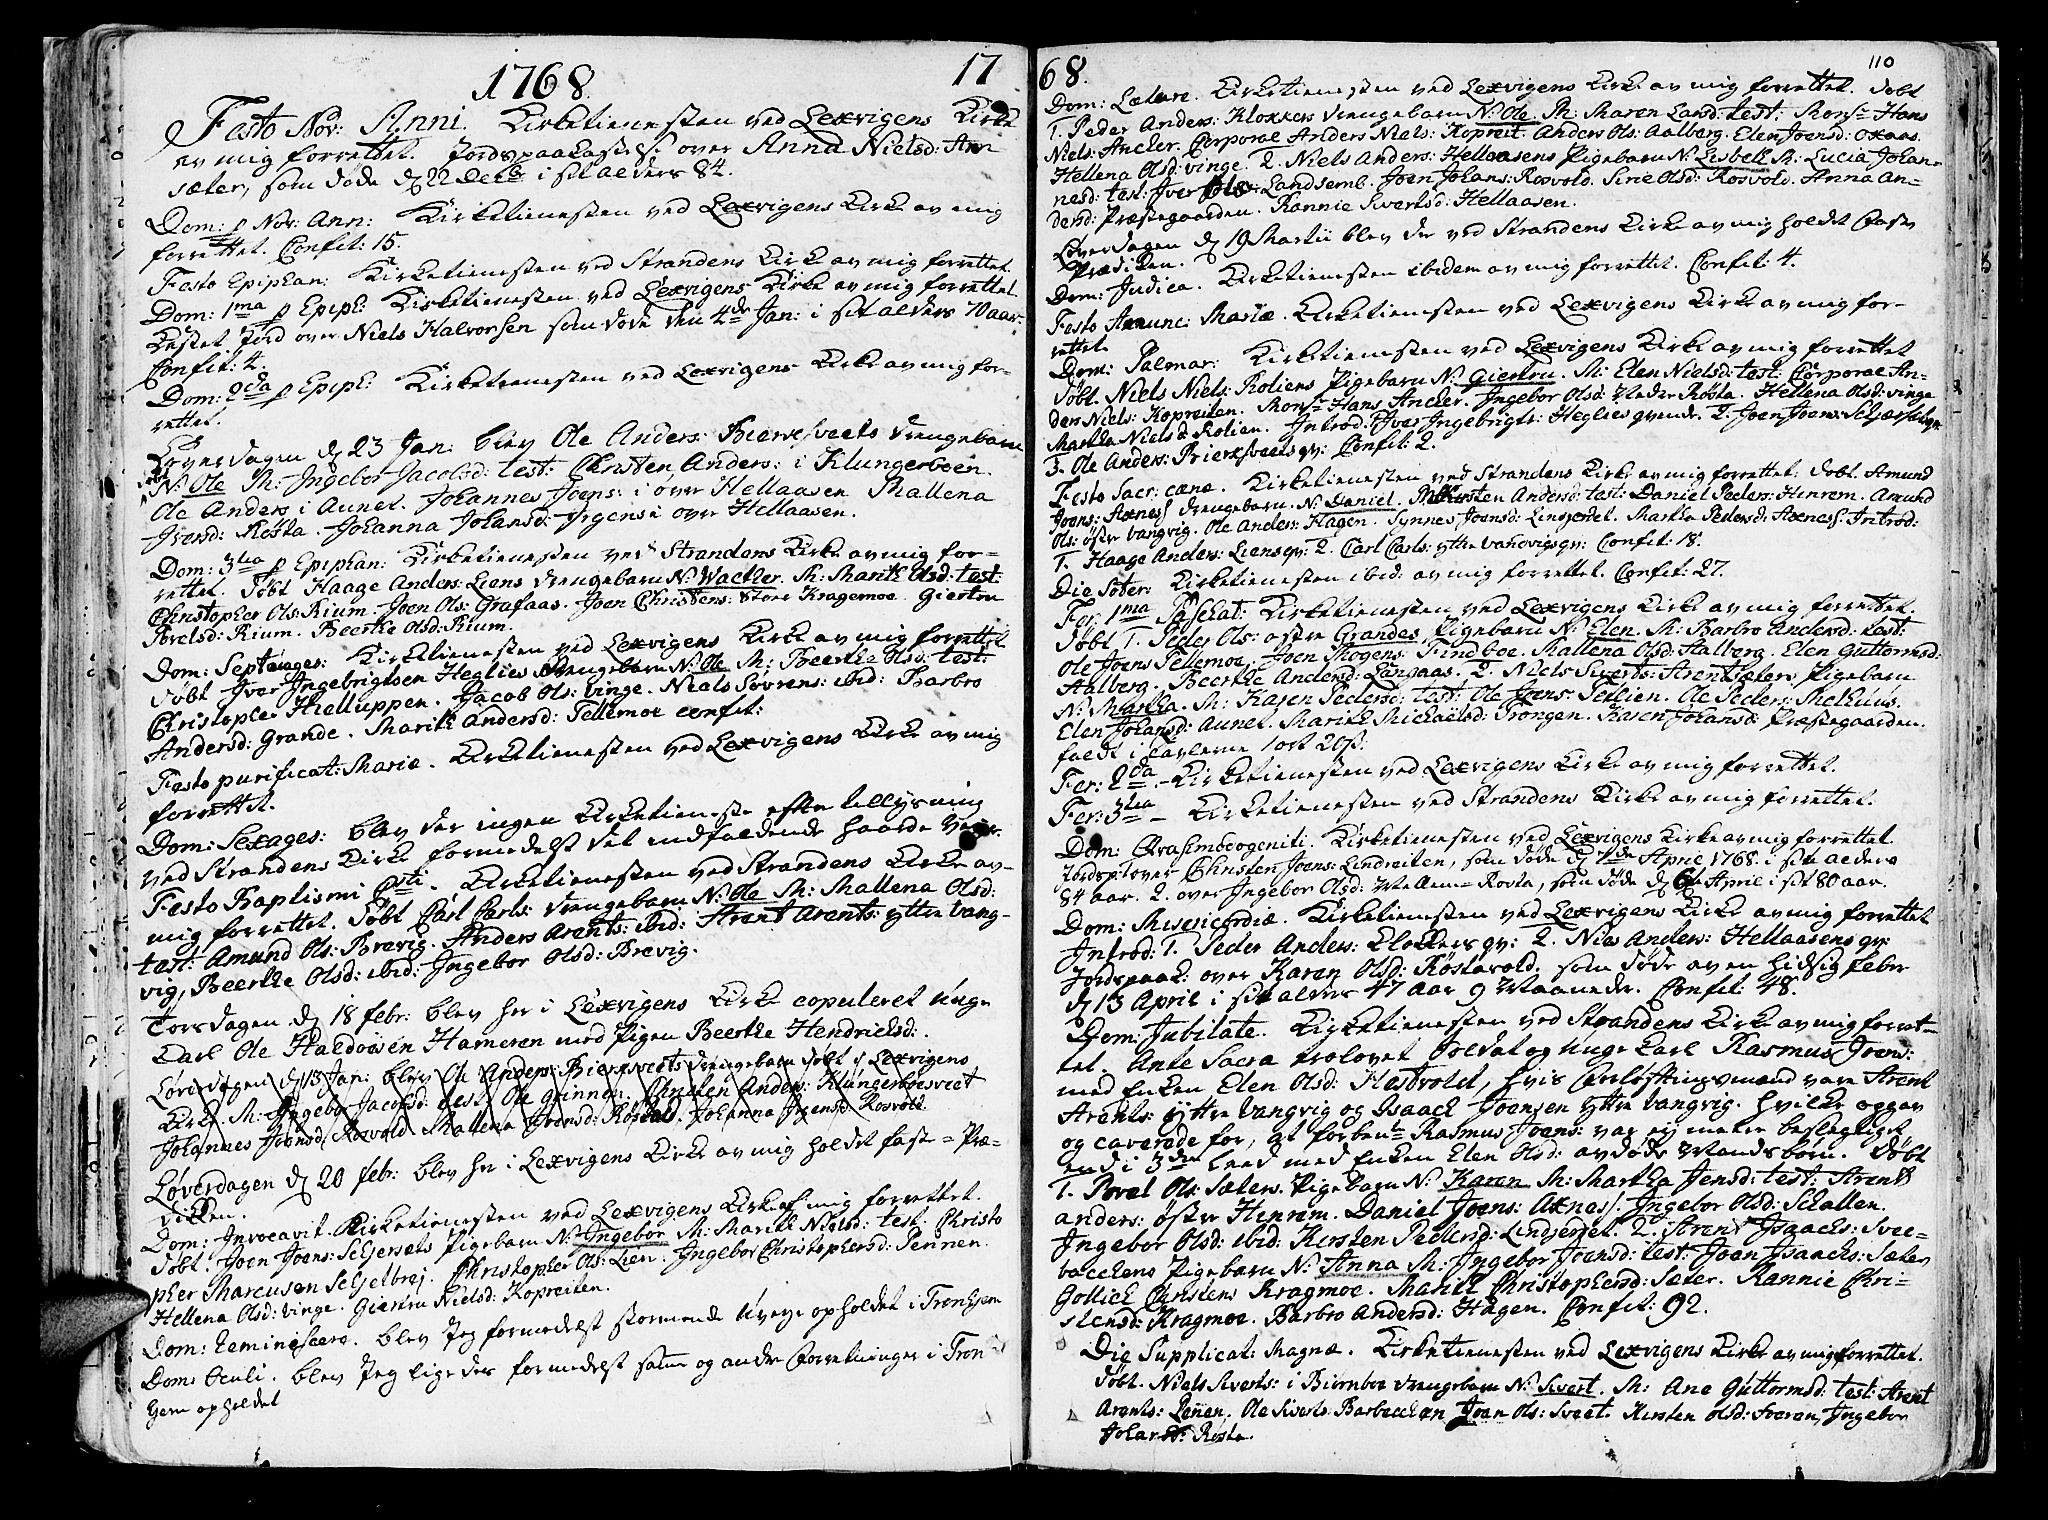 1768.
17
Festo Nov: Anni. Kirketienesten ved Lexvigens Kirke
av mig forrettet. Jordspaakastelse over Anna Nielsd:
sæter, som døde d 22 Decb i sit alders 84.
Dom: p Nov: Ann: Kirketienesten ved Lexvigens Kirke av mig
forrettet. Confit: 15.
Festo Epiphan: Kirketienesten ved Strandens Kirke av mig forrettet.
Dom: 1ma p Epiph: Kirketienesten ved Lexvigens Kirke av mig forrettet.
Kastet Jord over Niels Halvorsen som døde den 4de Jan: i sit alders 70 aar.
Confit: 4.
Dom: 2da p Epiph: Kirketienesten ved Lexvigens Kirke av mig for-
rettet.
Løverdagen d 23 Jan: blev Ole Anders: Bierksveets Drengebarn
døbt N: Ole M: Ingebor Jacobsd: test: Christen Anders: i Klungerboen.
Ole Anders i Aunet. Johannes Joens: i øvre Hellaasen Mallena
Iversd: Røsta. Johanna Johansd: Irgens i øvr Hellaasen.
Dom: 3tia p Epiphan: Kirketienesten ved Strandens Kirke av mig for-
rettet. Døbt Haage Anders: Liens Drengebarn N: Wachler. M: Marit Olsd: test:
Christopher Ols: Rium. Joen Ols: Grafaas. Joen Christens: Store Kragemoe. Giertru
Povelsd: Rium. Beerthe Olsd: Rium.
Dom: Septuages: Kirketienesten ved Lexvigens Kirke av mig forrettet.
Døbt Iver Ingebrigtsen Heglies Drengebarn N: Ole M: Beerthe Olsd: test:
Christopher Hielluppen. Jacob Ols: Vinge. Niels Søvrens: ibid: Barbro
Andersd: Grande. Marith Andersd: Tellemoe Confit:
Festo purificat: Mariæ. Kirketienesten ved Lexvigens Kirke av mig
forrettet.
Dom: Sexages: blev der ingen Kirketieneste efter tillysning
ved Strandens Kirke formedelst det indfaldende haarde Veir.
Festo Baptismi Christi. Kirketienesten ved Strandens Kirke av-
mig forrettet. Døbt Carl Carls: Drengebarn N: Ole M: Mallena Olsd:
test: Amund Ols: Brevig. Anders Arents: ibid: Arent Arents: yttre Vang-
vig, Beerthe Olsd: ibid: Ingebor Olsd: Brevig.
Torsdagen d 18 febr: blev her i Lexvigens Kirke copuleret Unge
Carl Ole Haldorsen Hameren med Pigen Beerthe Hendrichsd:
Løverdagen d 13 Jan: blev Ole Anders: Bierksveets Drengebarn døbt i Lexvigens
Kirke M: Ingebor Jacobsd: test: Ole grinner. Christen Anders: Klungerboesveet
Johannes Joensd: Rosvold Mallena Iversd: Røsta. Johanna Irgensd: Rosvold.
Løverdagen d 20 febr: blev her i Lexvigens Kirke av mig holdet faste-Præ-
diken.
Dom: Invocavit. Kirketienesten ved Lexvigens Kirke af mig forrettet.
Døbt. Joen Joens: Schjersets Pigebarn N: Ingebor M: Marith Nielsd: test: Christo
pher Marcusen Schjelbrej. Christopher Ols: Lien. Ingebor Christophersd: Pennen.
Hellena Olsd: Vinge. Giertru Nielsd: Kopreiten.
Dom: Reminiscere. blev Jeg formedelst stormende Uveye opholdet i Tronhiem
Dom: Oculi. blev Jeg ligedes formedelst samme og andre Forretninger i Tron
hiem opholdet
68.
110
Dom: Lætare. Kirketienesten ved Lexvigens Kirke av mig forrettet. Døbt
1. Peder Anders: Klokkers Drengebarn N: Ole M: Maren Land: test: Monsr Hans
Niels: Ancher. Corporal Anders Niels: Kopreit. Anders Ols: Aalberg. Elen Joensd: Oxaas.
Hellena Olsd: Vinge. 2. Niels Anders: Hellaasens Pigebarn N: Lisbeth M: Lucia Johan-
nesd: test: Iver Ols: Landsemb. Joen Johans: Rosvold. Sirie Olsd: Rosvold. Anna An-
dersd: Præstegaarden. Rannie Sivertsd: Hellaasen.
Løverdagen d 19 Martii blev der ved Strandens Kirke av mig holdet Faste
Prædiken.
Dom: Judica. Kirketienesten ibidem av mig forrettet. Confit: 4.
Festo Annunc: Mariæ. Kirketienesten ved Lexvigens Kirke av mig for-
rettet
Dom: Palmar: Kirketienesten ved Lexvigens Kirke av mig forrettet
Døbt Niels Niels: Roliens Pigebarn N: Giertru. M: Elen Nielsd: test: Corporal An-
ders Niels: Kopreiten. Monsr Hans Ancher. Ingebor Olsd: Neder Røsta. Hellena Olsd: Vinge
Martha Nielsd: Rolien. Introd: Iver Ingebrigts: Heglies qvinde. 2. Joen Joens: Schjersets qv:
3. Ole Anders: Bierksveets qv: Confit: 2.
Festo Sacr: cænæ. Kirketienesten ved Strandens Kirke av mig forrettet. Døbt Amund
Joens: Axness Drengebarn. N: Daniel. M: Kirsten Andersd: test: Daniel Peders: Hinrem. Amund
Ols: øster Vangvig. Ole Anders: Hagen. Synnes Joensd: Lindsetet. Martha Pedersd: Axness. Introd:
1. Haage Anders: Liens qv: 2. Carl Carls: yttre Vanvigs qv: Confit: 18.
Die Soter: Kirketienesten ibid: av mig forrettet. Confit: 27.
Fer: 1ma Paschat: Kirketienesten ved Lexvigens Kirke av mig forrettet.
Døbt 1. Peder Ols: østre Grandes Pigebarn N: Elen. M: Barbro Andersd: test:
Ole Joens Tellemoe. Joen Mogens: Findboe. Mallena Olsd: Aalberg. Elen Guttormsd:
Aalberg. Beerthe Andersd: Langaas. 2. Niels Siverts: Arentsæters Pigebarn
N: Martha. M: Karen Pedersd: test: Ole Joens Petlien. Ole Peders: Melhuus.
Elen Johansd: Aunet. Marith Michaelsd: Trongen. Karen Johansd: Præstegaarden.
faldt i tavlerne 1 ort 20 s:
Fer: 2da - Kirketienesten ved Lexvigens Kirke av mig forrettet.
Fer: 3tia - Kirketienesten ved Strandens Kirke av mig forrettet.
Dom: Qvasimodogeniti. Kirketienesten ved Lexvigens Kirke av mig forrettet
Jordsp: 1 over Christen Joens: Lindreiten, som døde d 7de April 1768. i sit alders
84 aar. 2. over Ingebor Olsd: Mellem-Røsta, som døde d 6t April i sit 80 aar.
Dom: Misericordiæ. Kirketienesten ved Lexvigens Kirke av mig forrettet
Introd: 1. Peder Anders: Clockers qv: 2. Niels Anders: Hellaasens qv:
Jordspaak: over Karen Olsd: Røstavold. som døde av en hidsig feber
d 13 April i sit alders 47 aar 9 Maaneder. Confit: 48.
Dom: Jubilate. Kirketienesten ved Strandens Kirke av mig forret-
tet. Ante Sacra trolovet Soldat og Unge Carl Rasmus Joens:
med Enken Elen Olsd: Hestvoldt, hvis Forløftningsmænd vare Arent
Arents: Yttre Vangvig og Isaach Joensen yttre Vangvig. hvilke opgav
og caverede for, at forbente Rasmus Joens: var ej mere beslegtiget
end i 3die Leed med Enken Elen Olsd: avdøde Mandsbørn. Døbt
1. Povel Ols: Sæters. Pigebarn N: Karen M: Martha Jensd: test: Arent
anders: øster Hinrem. Daniel Joens: Axness. Ingebor Olsd: Schallen.
Ingebor Olsd: ibid: Kirsten Pedersd: Lindsettet. 2. Arent Isaachs: Svee-
bacchens Pigebarn N: Anna M: Ingebor Joensd: test: Joen Isaachs: Sæter
Gollich Christens Kragmoe. Marith Christophersd: Sæter. Rannie Chri-
stensd: Kragmoe. Barbro Andersd: Hagen. Confit: 92.
Die Supplicat: Magnæ. Kirketienesten ved Lexvigens Kirke av mig forrettet.
Døbt. Niels Siverts: i Biørnboe Drengebarn N: Sivert. M: Ane Guttormsd: test: Arent
Arents: Pennen. Ole Siverts: Barbacchen Joen Ols: Sveet. Kirsten Olsd: Sveen, Ingebor
Johansd: Røsta.